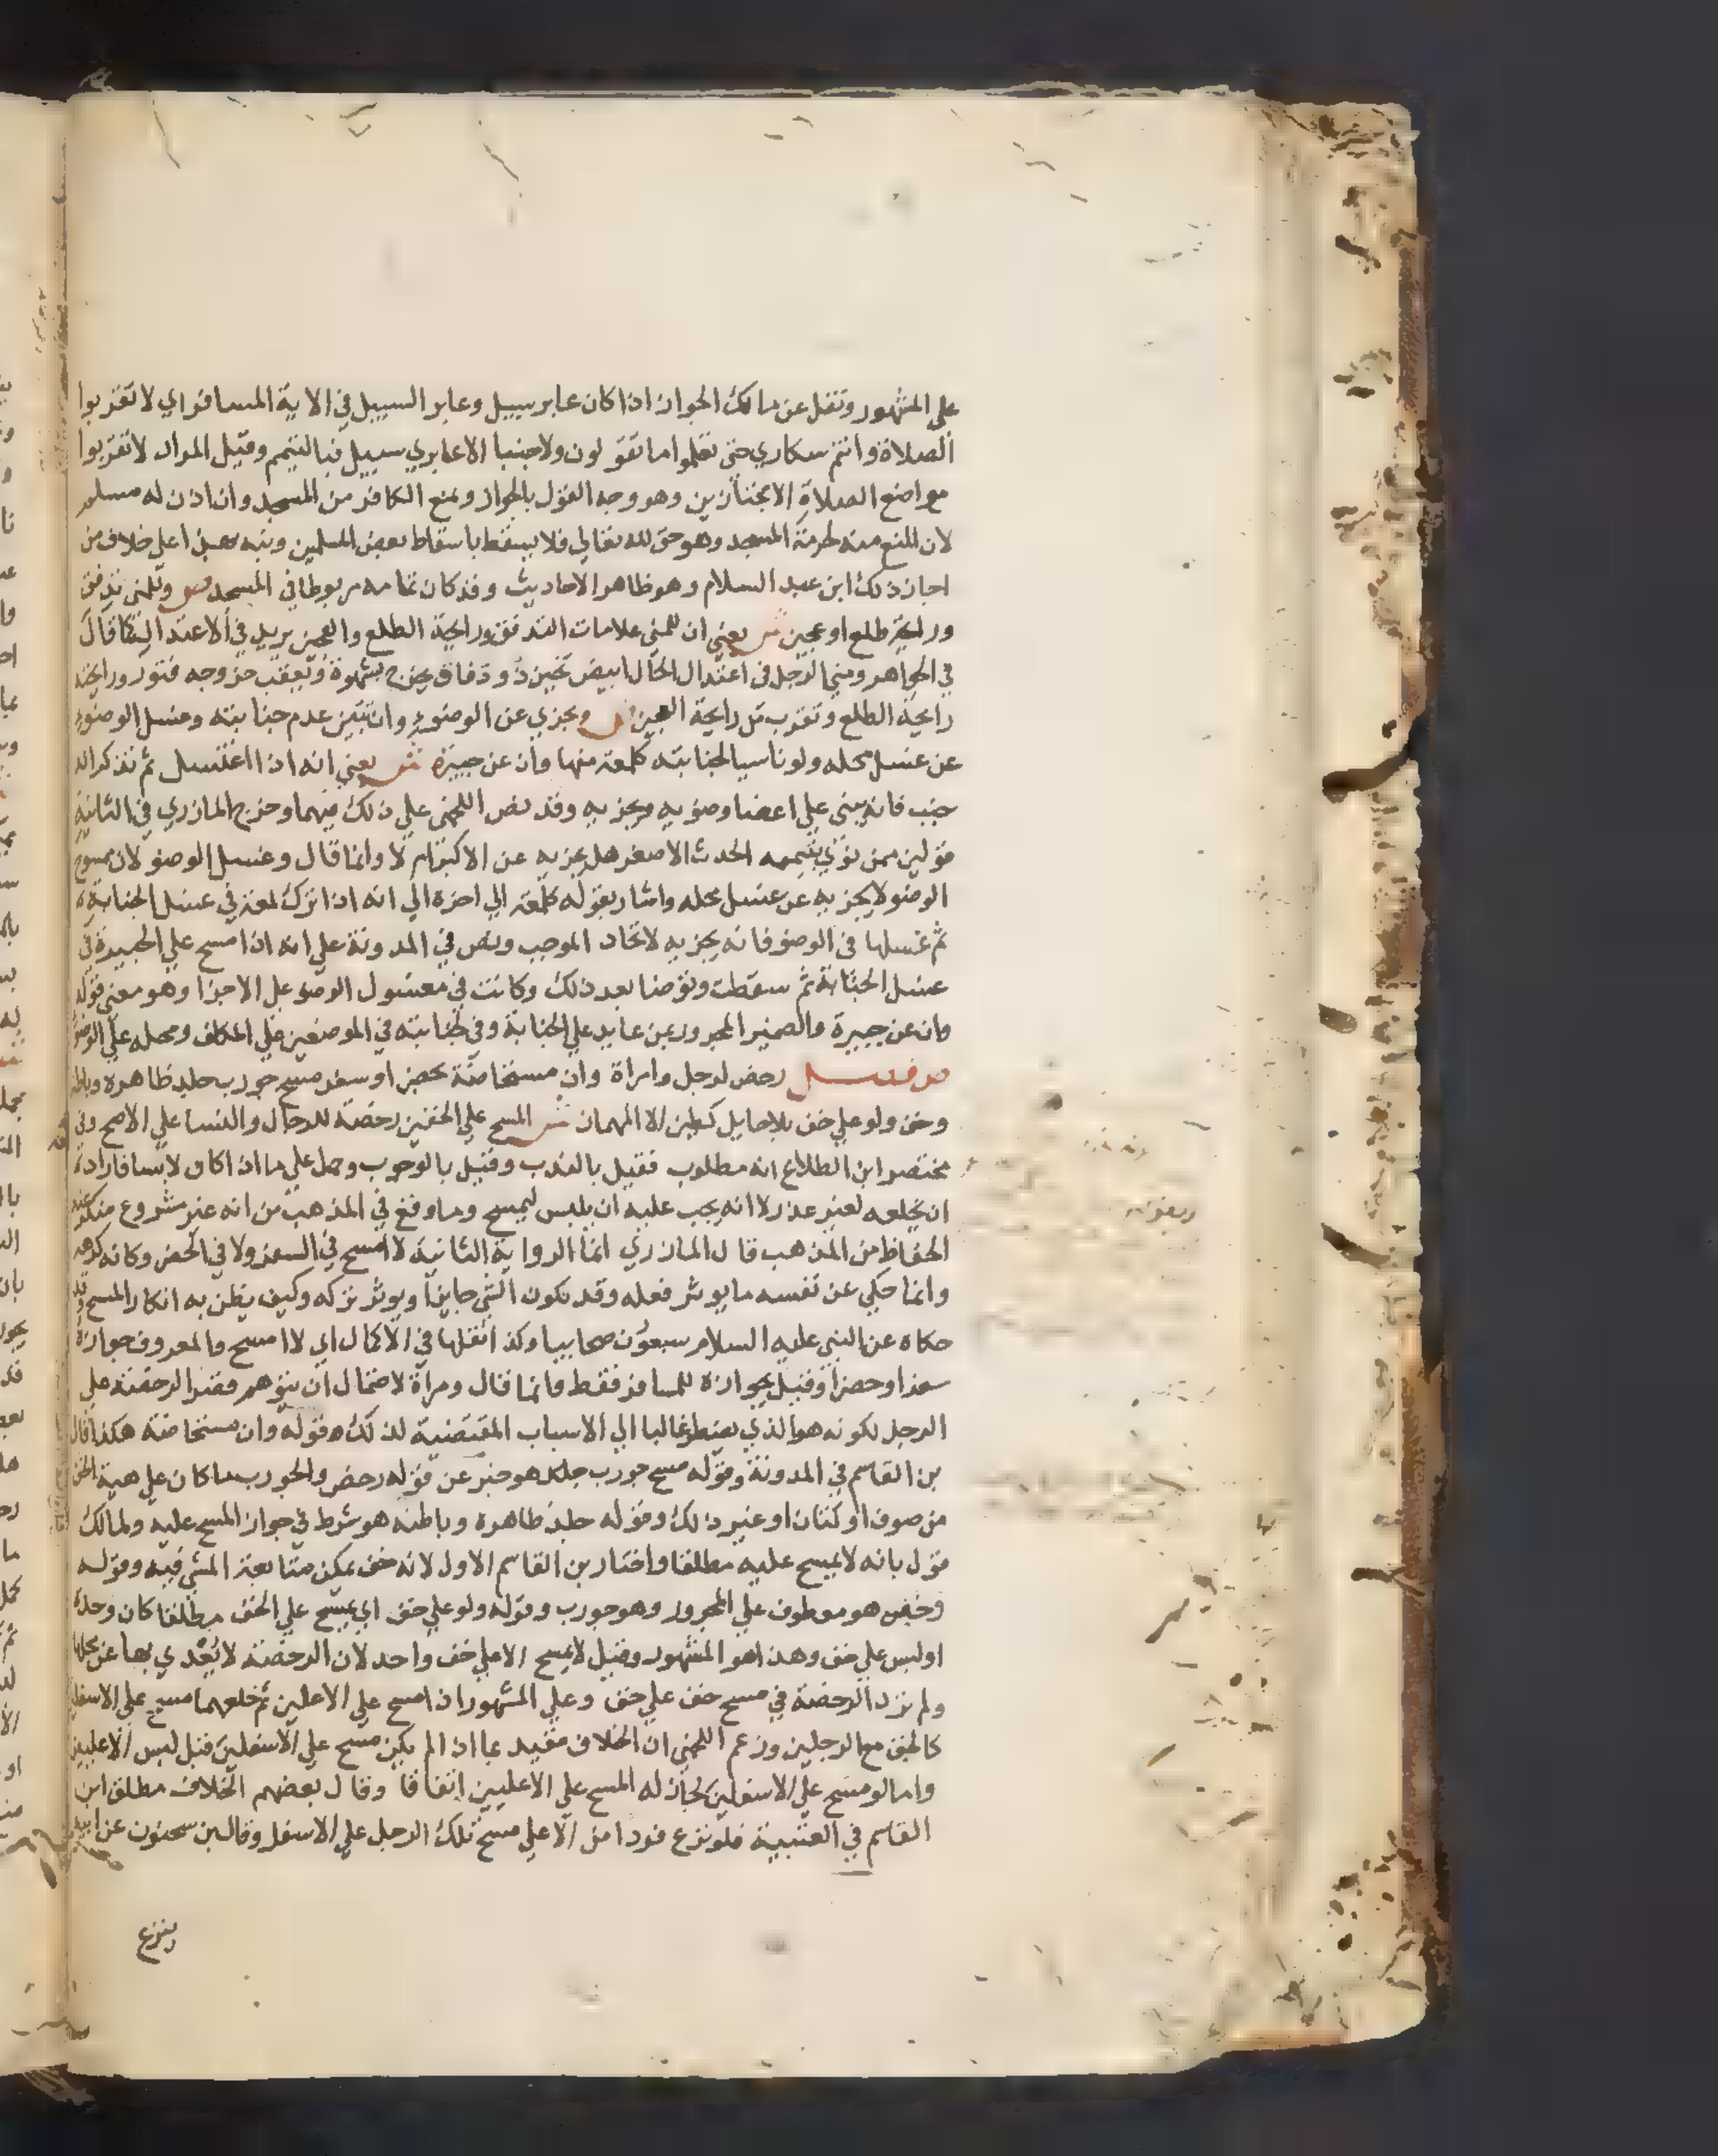 على المشهور ونقل عن مالك الجواز اذا كان عابر سبيل وعابر السبيل في الاية المسافر اي لا تقربوا
الصلاة وانتم سكاري حتى تعلموا ما تقولون ولا جنبا الا عابري سبيل فبالتيمم وقيل المراد لا تقربوا
مواضع الصلاة الا مجتازين وهو وجه القول بالجواز ومنع الكافر من المسجد وان اذن له مسلم
لان المنع منه لحرمة المسجد وهو حق لله تعالي فلا يسقط باسقاط بعض المسلمين ونبه علي خلاف من
اجاز ذلك ابن عبد السلام وهو ظاهر الاحاديث وقد كان ثمامه مربوطا في المسجد ص وللمني تدفق
ورايحة طلع او عجين ش يعني ان للمني علامات التدفق ورايحة الطلع والعجين يريد في الاعتدال قال
في الجواهر ومني الرجل في اعتدال الحال ابيض ثخين ذو دفاق يخرج بشهوة ويعقب خروجه فتور ورايحته
رايحة الطلع وتقرب من رايحة العجين ص ويجزي عن الوضوء وان تبين عدم جنابته وغسل الوضوء
عن غسل محله ولو ناسيا لجنابته كلمعة منها وان عن جبيرة ش يعني انه اذا اغتسل ثم تذكر انه
جنب فانه يبني علي اعضا وضوءيه ويجزيه وقد نص اللخمي علي ذلك فيهما وخرج المازري في الثانية
قولين ممن نوي بتيممه الحدث الاصغر هل يجزيه عن الاكبر ام لا وانما قال وغسل الوضو لان ممسوح
الوضو لا يجزيه عن غسل محله واشار بقوله كلمعة الي اخره الي انه اذا ترك لمعة في غسل الجنابة
ثم غسلها في الوضو فانه يجزيه لاتحاد الموجب ونص في المدونة علي انه اذا مسح علي الجبيرة في
غسل الجنابة ثم سقطت وتوضا بعد ذلك وكانت في مغسول الوضو علي الاجزا وهو معني قوله
وان عن جبيرة والضمير المجرور بمن عايد علي الجنابة وفي لجنابته في الموضعين علي المكلف ومحله علي الوضو
ص فصل رخص لرجل وامراة وان مستحاضة بحضر او سفر مسح جورب جلد ظاهره وباطنه
وخف ولو علي خف بلا حايل كطين الا المهماز ش المسح علي الخفين رخصة للرجال والنسا علي الاصح وفي
مختصر ابن الطلاع انه مطلوب فقيل بالندب وقيل بالوجوب وحمل علي ما اذا كان لابسا فاراد
ان يخلعه لغير عذر لا انه يجب عليه ان يلبس ليمسح وما وقع في المذهب من انه غير مشروع منكر عند
الحفاظ من المذهب قال المازري انما الرواية الثانية لا امسح في السفر ولا في الحضر وكانه كرهه
وانما حكي عن نفسه ما يوثر فعله وقد يكون الشي جايزا ويوثر تركه وكيف يظن به انكار المسح وقد
حكاه عن النبي عليه السلام سبعون صحابيا وكذا نقلها في الاكمال اي لا امسح والمعروف جوازه
سفرا وحضرا وقيل بجوازه للمسافر فقط وانما قال ومراة لاحتمال ان يتوهم قصر الرخصة علي
الرجل لكونه هو الذي يضطر غالبا الي الاسباب المقتضية لذلك وقوله وان مستحاضة هكذا قال
بن القاسم في المدونة وقوله مسح جورب جلد هو خبر عن قوله رخص والجورب ما كان علي هية الخف
من صوف او كتان او غير ذلك وقوله جلد ظاهره وباطنه هو شرط في جواز المسح عليه ولمالك
قول بانه لا يمسح عليه مطلقا واختار بن القاسم الاول لانه خف يمكن متابعة المشي فيه وقوله
وخف هو معطوف علي المجرور وهو جورب وقوله ولو علي خف اي يمسح علي الخف مطلقا كان وحده
او لبس علي خف وهذا هو المشهور وقيل لا يمسح الا علي خف واحد لان الرخصة لا يعدي بها عن محلها
ولم ترد الرخصة في مسح خف علي خف وعلي المشهور اذا مسح علي الاعلين ثم خلعهما مسح علي الاسفلين
كالخف مع الرجلين وزعم اللخمي ان الخلاف مقيد بما اذا لم يكن مسح علي الاسفلين قبل لبس الاعليين
واما لو مسح علي الاسفلين لجاز له المسح علي الاعليين اتفاقا وقال بعضهم الخلاف مطلق ابن
القاسم في العتبية فلو نزع فردا من الاعلي مسح تلك الرجل علي الاسفل وقال بن سحنون عن ابيه
ينزع